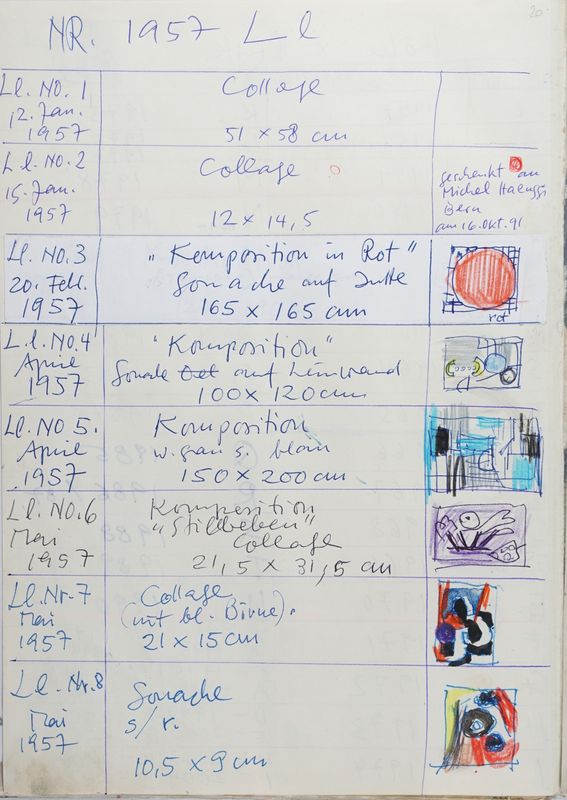 20
NR. 1957 Ll
Ll. NO. 1
Collage
12. Jan.
1957
51 x 58 cm
Ll. NO. 2
Collage
15. Jan.
1957
12 x 14,5
geschenkt an
Michel Haenggi
Bern
am 16. Okt. 91
Ll. NO. 3
"Komposition in Rot"
20. Febr.
Gouache auf Jutte
1957
165 x 165 cm
rot
Ll. NO. 4
"Komposition"
April
Gouache Oel auf Leinwand
1957
100 x 120 cm
Ll. NO 5.
Komposition
April
w. grau s. blau
1957
150 x 200 cm
Ll. NO. 6
Komposition
Mai
"Stillleben"
Collage
1957
21,5 x 31,5 cm
Ll. Nr. 7
Collage
Mai
(mit bl. Birne).
1957
21 x 15 cm
Ll. Nr. 8
Gouache
Mai
s/r.
1957
10,5 x 9 cm